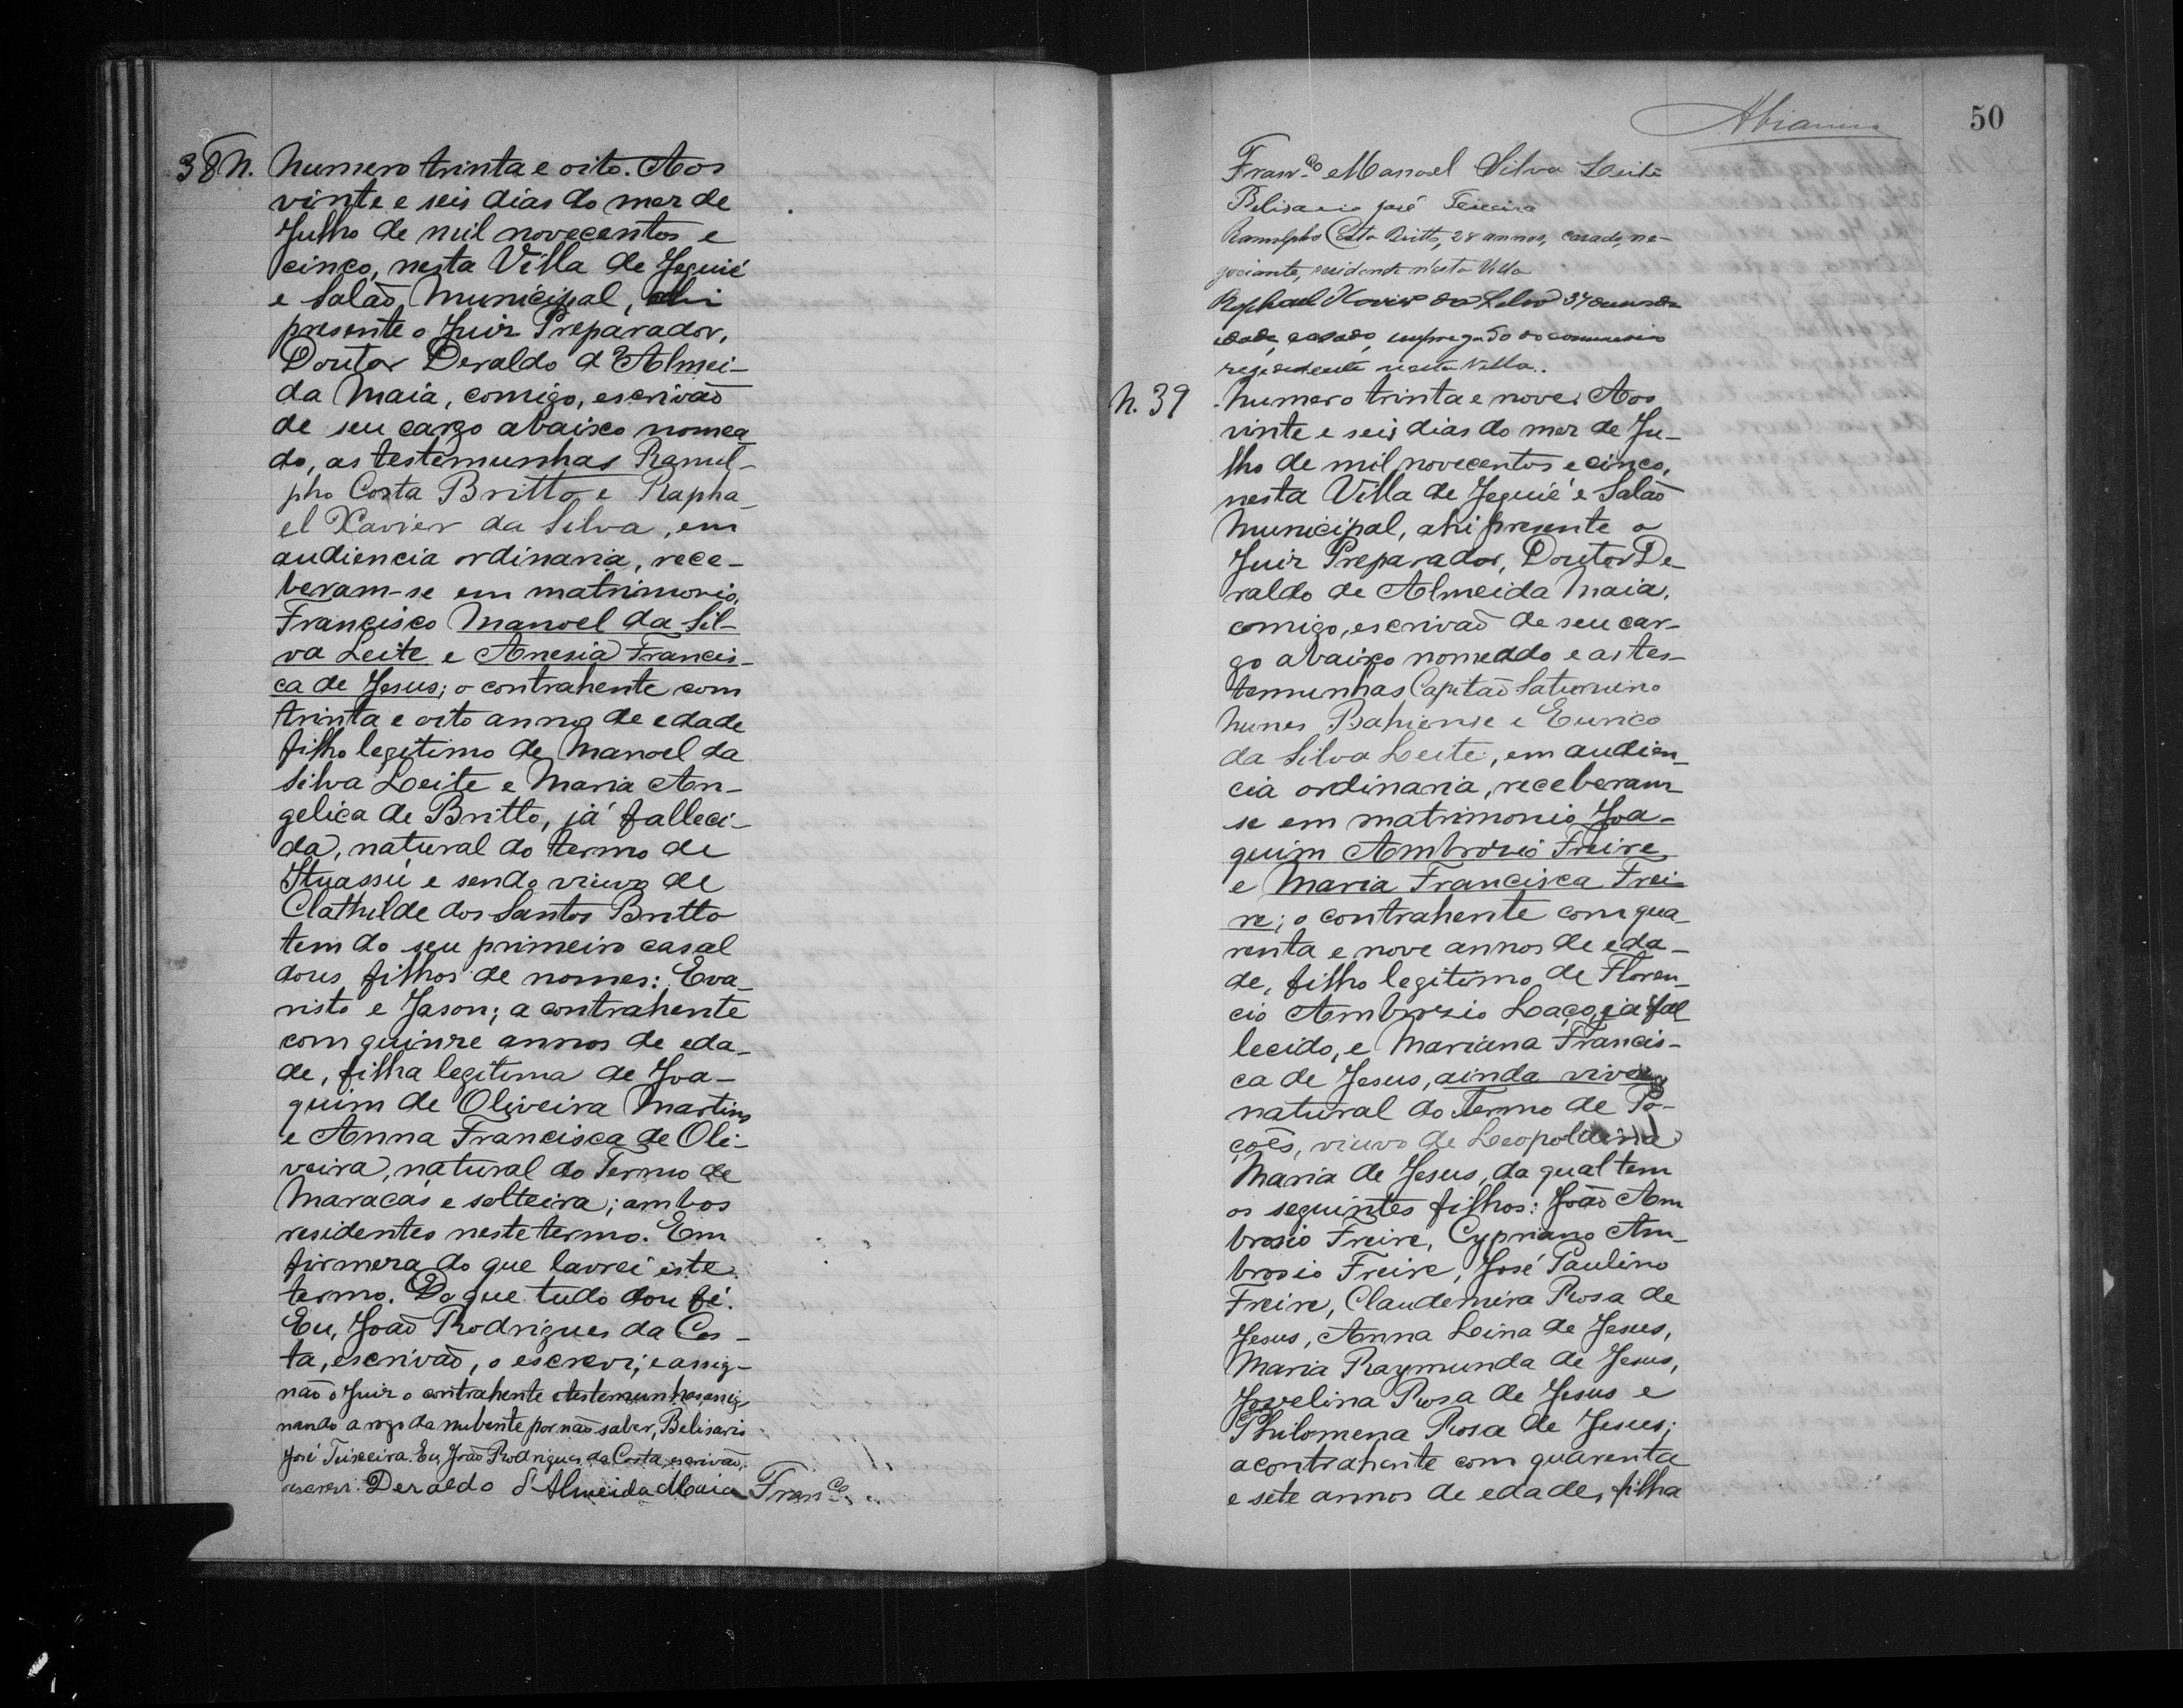 38 N. Numero trinta e oito. Aos
vinte e seis dias do mez de
Julho de mil novecentos e
cinco, nesta Villa de Jequié
e Salão Municipal, ahi
presente o Juiz Preparador,
Doutor Deraldo d'Almei-
da Maia, comigo, escrivão
de seu cargo abaixo nomea
do, as testemunhas Ranul-
pho Costa Britto e Rapha-
el Xavier da Silva, em
audiencia ordinaria, rece-
beram-se em matrimonio,
Francisco Manoel da Sil-
va Leite e Anesia Francis-
ca de Jesus; o contrahente com
trinta e oito annos de edade
filho legitimo de Manoel da
Silva Leite e Maria An-
gelica de Britto, já falleci-
da, natural do termo de
Ituassú e sendo viuvo de
Clathilde dos Santos Britto
tem do seu primeiro casal
dous filhos de nomes: Eva-
risto e Jason; a contrahente
com quinze annos de eda-
de, filha legitima de Joa-
quim de Oliveira Martins
e Anna Francisca de Oli-
veira, natural do Termo de
Maracás e solteira; ambos
residentes neste termo. Em
firmeza do que lavrei este
termo. Do que tudo dou fé.
Eu, João Rodrigues da Cos-
ta, escrivão, o escrevi; e assig-
não o Juiz o contrahente e testemunhas, assig
nando a rogo da nubente por não saber, Belisario
José Teixeira. Eu, João Rodrigues da Costa, escrivão,
escrevi. Deraldo d'Almeida Maia Fran.co
50
Fran.co Manoel Silva Leite
Belisario José Teixeira
Ranulpho Costa Britto, 28 annos, casado, ne-
gociante, residente n'esta Villa
Raphael Xavier da Silva 34 annos de
idade, casado, empregado do commercio
residente nesta Villa.
N. 39 Numero trinta e nove. Aos
vinte e seis dias do mez de Ju-
lho de mil novecentos e cinco,
nesta Villa de Jequié e Salão
Municipal, ahi presente o
Juiz Preparador, Doutor De-
raldo de Almeida Maia,
comigo, escrivão de seu car-
go abaixo nomeado e as tes-
temunhas Capitão Saturnino
Nunes Bahiense e Eurico
da Silva Leite, em audien-
cia ordinaria, receberam
se em matrimonio Joa-
quim Ambrosio Freire
e Maria Francisca Frei-
re; o contrahente com qua-
renta e nove annos de eda-
de, filho legitimo de Floren-
cio Ambrozio Laço, já fal
lecido, e Mariana Francis-
ca de Jesus, ainda viva,
natural do Termo de Po-
ções, viuvo de Leopoldina
Maria de Jesus, da qual tem
os seguintes filhos: João Am
brosio Freire, Cypriano Am-
brosio Freire, José Paulino
Freire, Claudemira Rosa de
Jesus, Anna Leina de Jesus,
Maria Raymunda de Jesus,
Jovelina Rosa de Jesus e
Philomena Rosa de Jesus;
a contrahente com quarenta
e sete annos de edade, filha